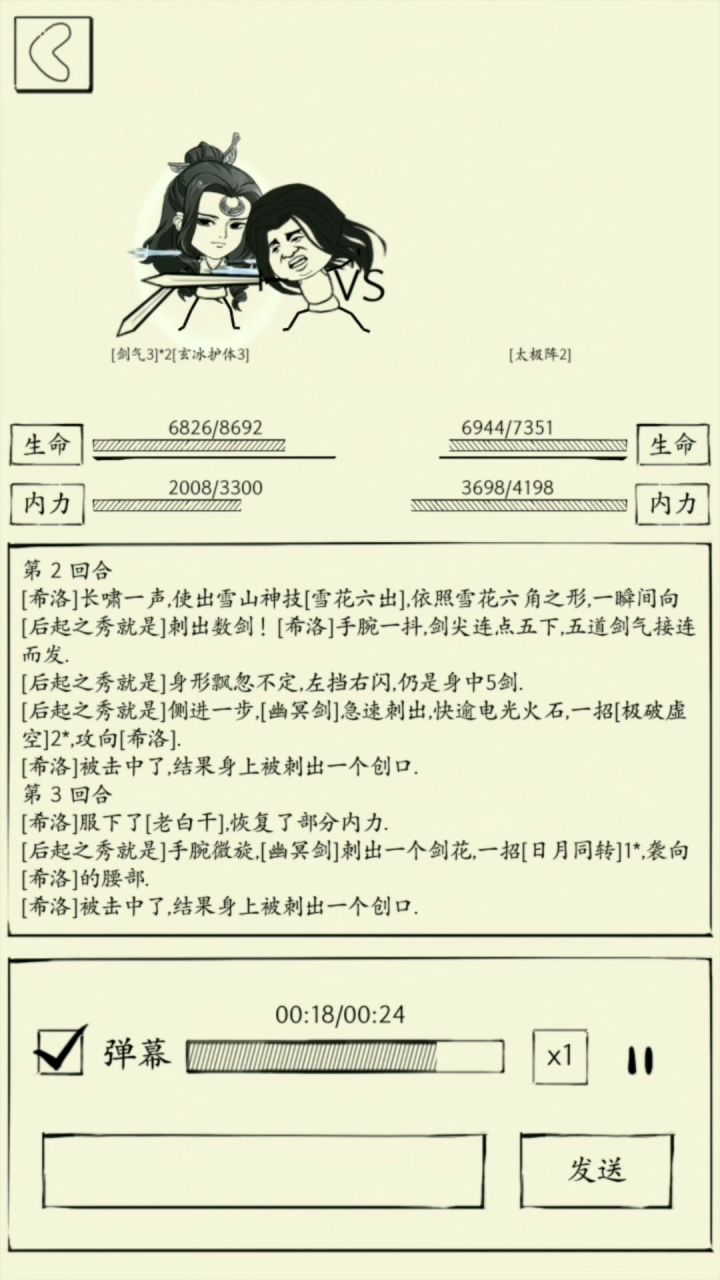 VS
[剑气3]*2[玄冰护体3]
[太极阵2]
生命
6826/8692
6944/7351
生命
内力
2008/3300
3698/4198
内力
第 2 回合
[希洛]长啸一声,使出雪山神技[雪花六出],依照雪花六角之形,一瞬间向
[后起之秀就是]刺出数剑！[希洛]手腕一抖,剑尖连点五下,五道剑气接连
而发.
[后起之秀就是]身形飘忽不定,左挡右闪,仍是身中5剑.
[后起之秀就是]侧进一步,[幽冥剑]急速刺出,快逾电光火石,一招[极破虚
空]2*,攻向[希洛].
[希洛]被击中了,结果身上被刺出一个创口.
第 3 回合
[希洛]服下了[老白干],恢复了部分内力.
[后起之秀就是]手腕微旋,[幽冥剑]刺出一个剑花,一招[日月同转]1*,袭向
[希洛]的腰部.
[希洛]被击中了,结果身上被刺出一个创口.
00:18/00:24
弹幕
x1
发送